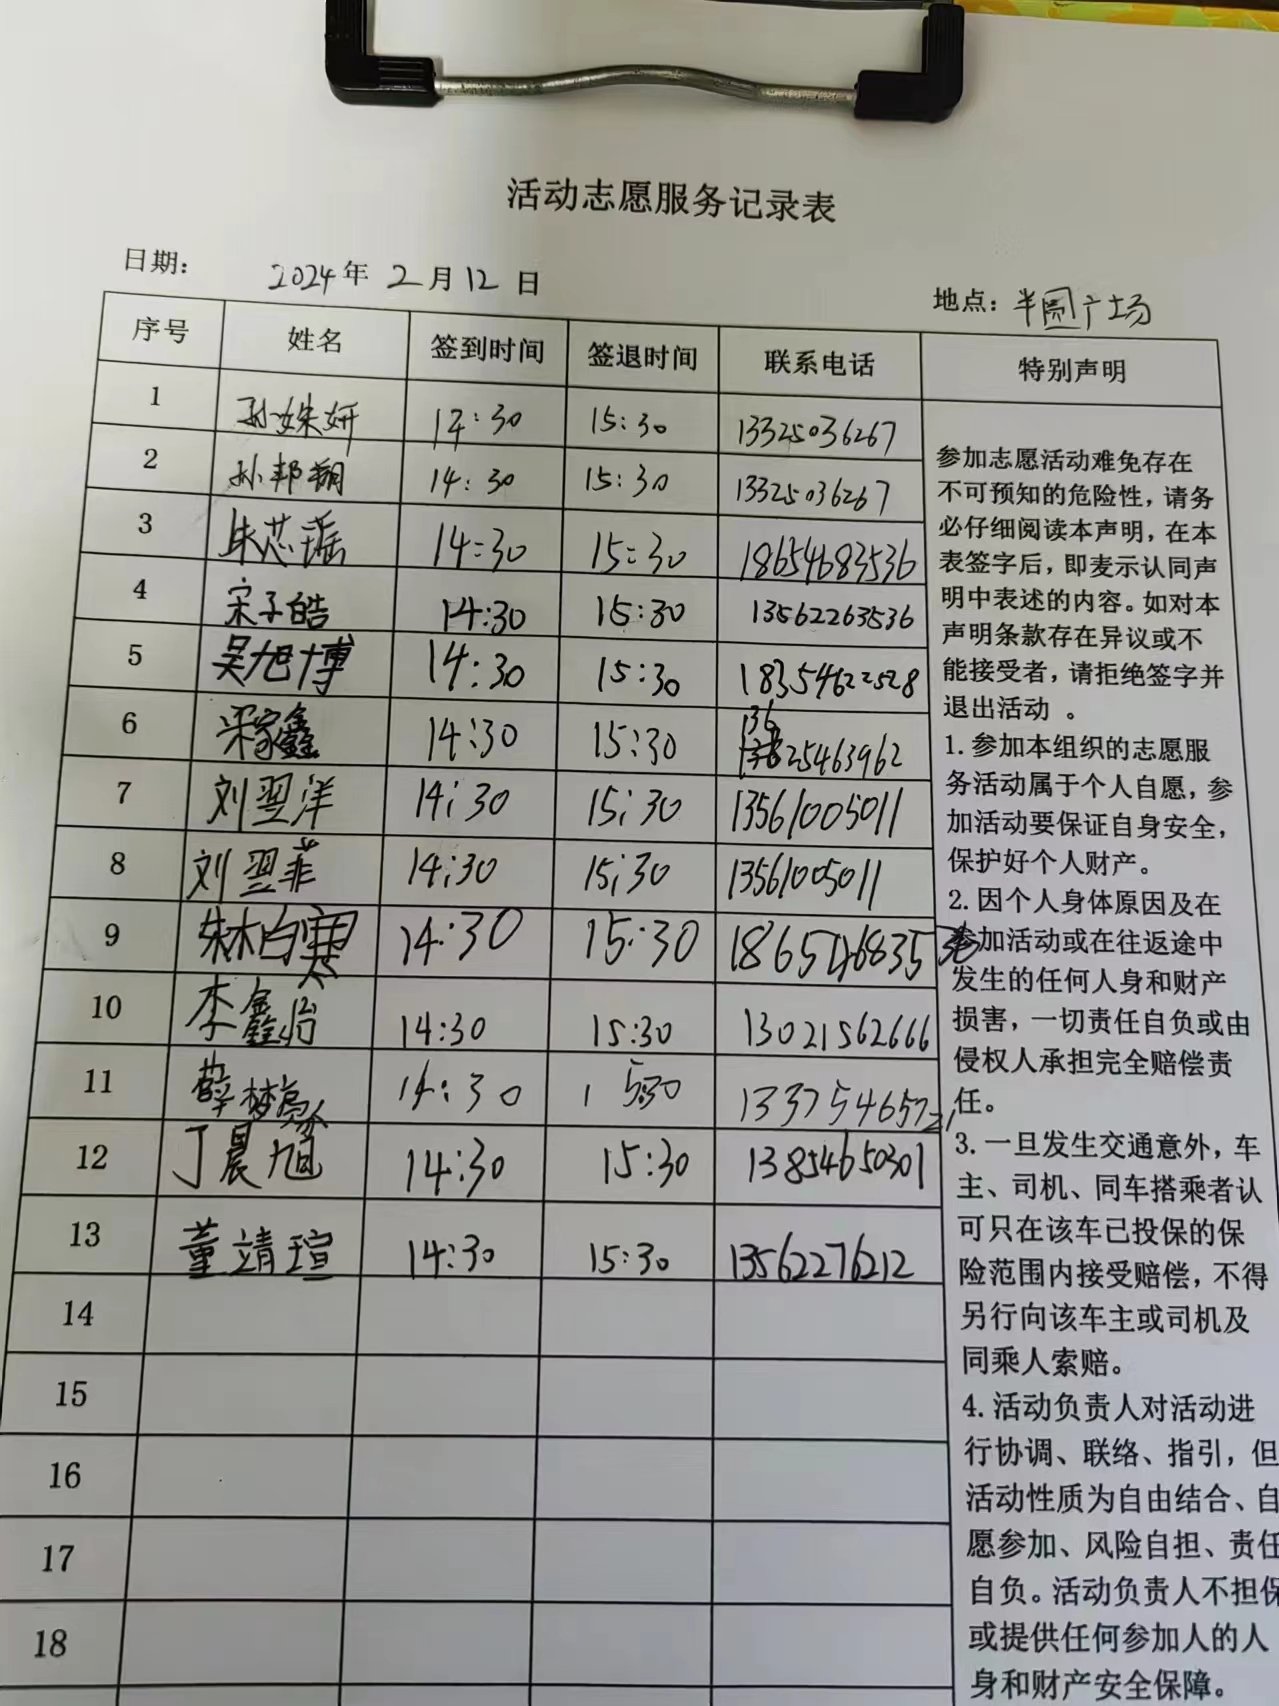 活动志愿服务记录表
日期: 2024年 2月12日
地点: 半圆广场
序号 姓名 签到时间 签退时间 联系电话 特别声明
1 孙姝妍 14:30 15:30 13325036267
2 孙邦翔 14:30 15:30 13325036267
3 朱芯瑶 14:30 15:30 18654683536
4 宋子皓 14:30 15:30 13562263536
5 吴旭博 14:30 15:30 18354622528
6 梁家鑫 14:30 15:30 13625463962
7 刘翌洋 14:30 15:30 13561005011
8 刘翌菲 14:30 15:30 13561005011
9 14:30 15:30 18654683536
10 李鑫怡 14:30 15:30 13021562666
11 薛梦 14:30 1530 13375465721
12 丁晨旭 14:30 15:30 13854650301
13 董靖瑄 14:30 15:30 13562276212
14
15
16
17
18
参加志愿活动难免存在
不可预知的危险性，请务
必仔细阅读本声明，在本
表签字后，即麦示认同声
明中表述的内容。如对本
声明条款存在异议或不
能接受者，请拒绝签字并
退出活动 。
1. 参加本组织的志愿服
务活动属于个人自愿，参
加活动要保证自身安全，
保护好个人财产。
2. 因个人身体原因及在
参加活动或在往返途中
发生的任何人身和财产
损害，一切责任自负或由
侵权人承担完全赔偿责
任。
3. 一旦发生交通意外，车
主、司机、同车搭乘者认
可只在该车已投保的保
险范围内接受赔偿，不得
另行向该车主或司机及
同乘人索赔。
4. 活动负责人对活动进
行协调、联络、指引，但
活动性质为自由结合、自
愿参加、风险自担、责任
自负。活动负责人不担保
或提供任何参加人的人
身和财产安全保障。